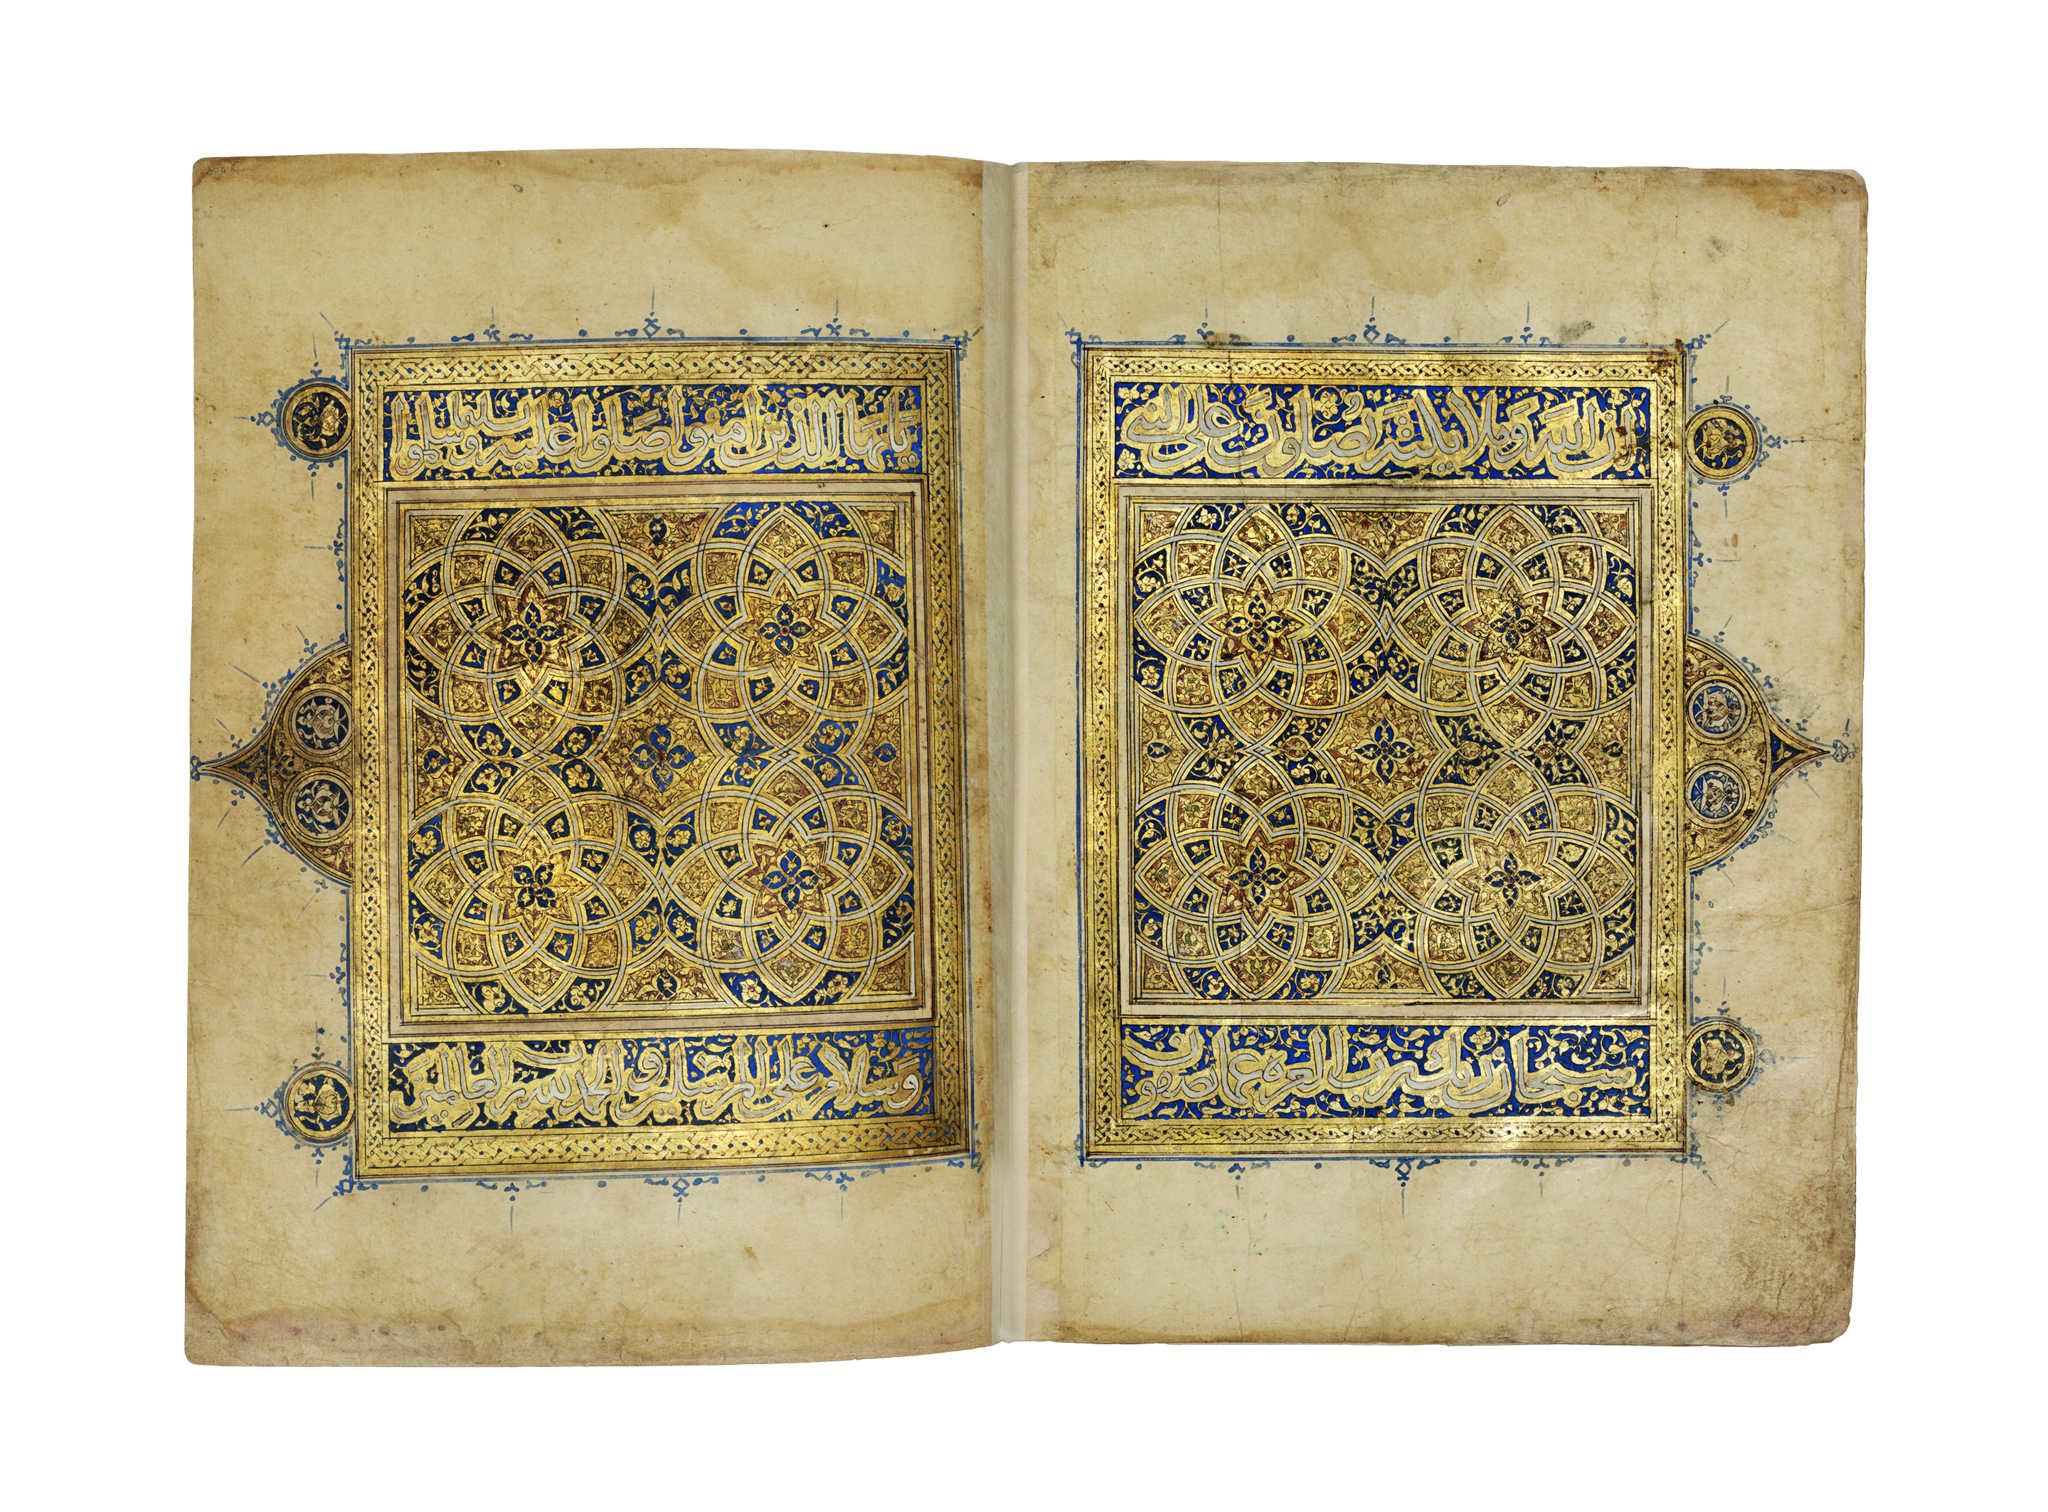 ان الله وملائكته يصلون على النبي
يا ايها الذين امنوا صلوا عليه وسلموا تسليما
سبحان ربك رب العزة عما يصفون
وسلام على المرسلين والحمد لله رب العالمين